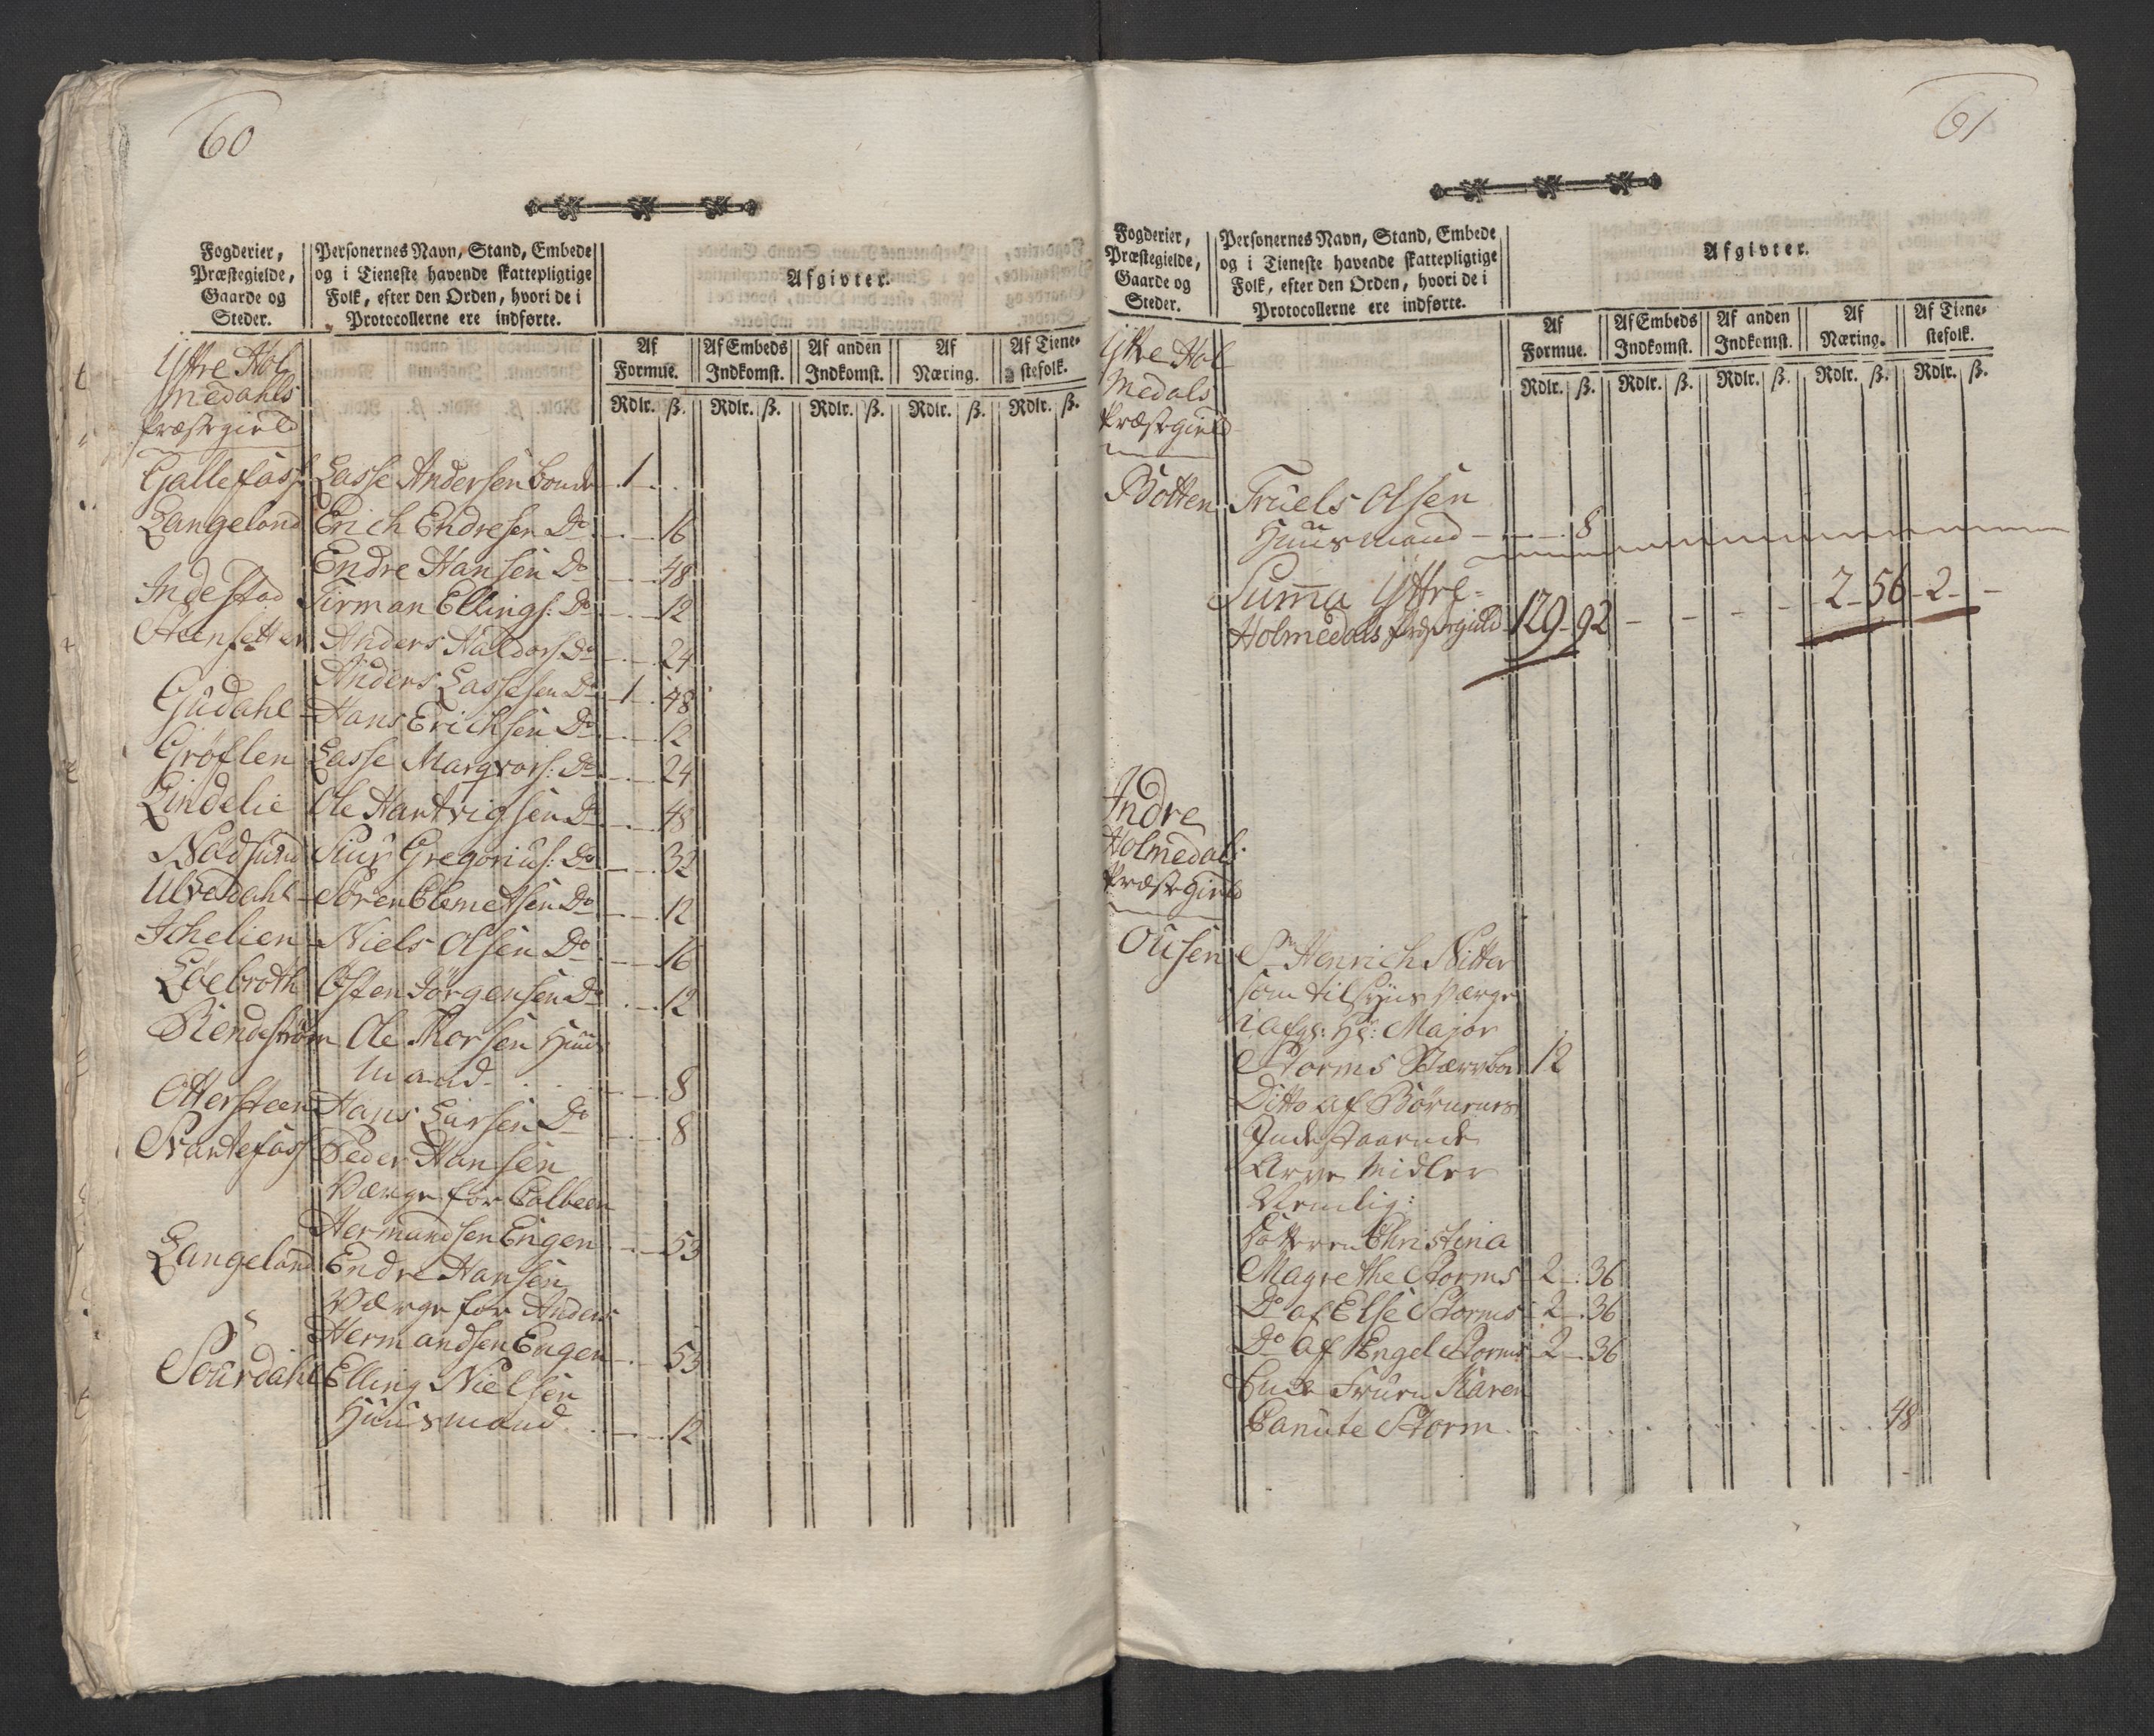 60
Fogderier,
Præstegielde,
Gaarde og
Steder.
Personernes Navn, Stand, Embede
og i Tieneste havende skattepligtige
Folk, efter den Orden, hvori de i
Protocollerne ere indførte.
Afgivter.
Af Formue.
Af Embeds Indkomst.
Af anden Indkomst.
Af Næring.
Af Tienestefolk.
Rdlr. ß. Rdlr. ß. Rdlr. ß. Rdlr. ß. Rdlr. ß.
Yttre Hol
medahls
Præstegield
Gallefoss Lasse Andersen bonde 1
Langeland Erich Endresen Do 16
Endre Hansen Do 48
Indestad Sirman Ellings: Do 12
Steensetter Anders Haldors Do 24
Anders Lassesen Do 1 48
Gudahl Hans Erichsen Do 12
Grøflen Lasse Marqvors: Do 24
Lindelie Ole Hantvigsen Do 48
Nødsund Siur Gregorius: Do 32
Ulvedahl Søren Clemetsen Do 12
Ichelien Niels Olsen Do 16
Løebroth Osten Jørgensen Do 12
Ole Thorsen Huus
mand 8
Ottersteen Hans Larsen Do 8
Svartefoss Peder Hansen
Værge for Colbeen
Hermandsen Engen 53
Langeland Endre Hansen
Værge for Anders
Hermandsen Engen 53
Sourdahl Elling Nielsen
Huusmand 12
61
Fogderier,
Præstegielde,
Gaarde og
Steder.
Personernes Navn, Stand, Embede
og i Tieneste havende skattepligtige
Folk, efter den Orden, hvori de i
Protocollerne ere indførte.
Afgivter.
Af Formue.
Af Embeds Indkomst.
Af anden Indkomst.
Af Næring.
Af Tienestefolk.
Rdlr. ß. Rdlr. ß. Rdlr. ß. Rdlr. ß. Rdlr. ß.
Yttre Hol
medals
Præstegield
Botten Truels Olsen
Huusmand 8
Summa Yttre
Holmedals Præstegield 129 92 - - - - 2 56 2 -
Indre
Holmedals
Præstegield
Ousen Sr Henrich Nitter
som tilsyns Værge
i afgl: Hr: Major
Storms Stærvbo 12
Ditto af Børnenes
Indestaaende
Arve Midler
Nemlig:
Datteren Christina
Magrethe Storms 2 36
Do af Else Storms 2 36
Do af Engel Storms 2 36
Fruen Karen
Canute Storm 48